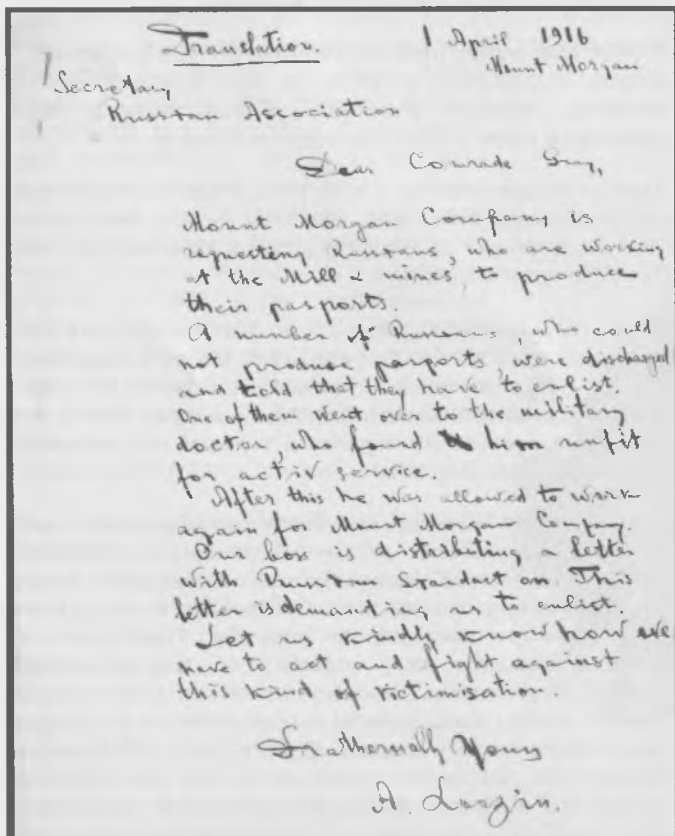 Translation.
1 April 1916
Mount Morgan
Secretary
Russian Association
Dear Comrade
Mount Morgan Company is
requesteng Russians, who are working
at the Mill & mines, to produce
their pasports.
A number of Russians, who could
not produce pasports, were discharged
and told that they have to enlist.
One of them went over to the military
doctor, who found him unfit
for activ service.
After this he was allowed to work
again for Mount Morgan Company.
Our boss is distributing a letter
with Russian Standart on This
letter is demanding us to enlist.
Let us kindly know how we
have to act and fight against
this kind of victimisation.
Fraternally Yours
A.